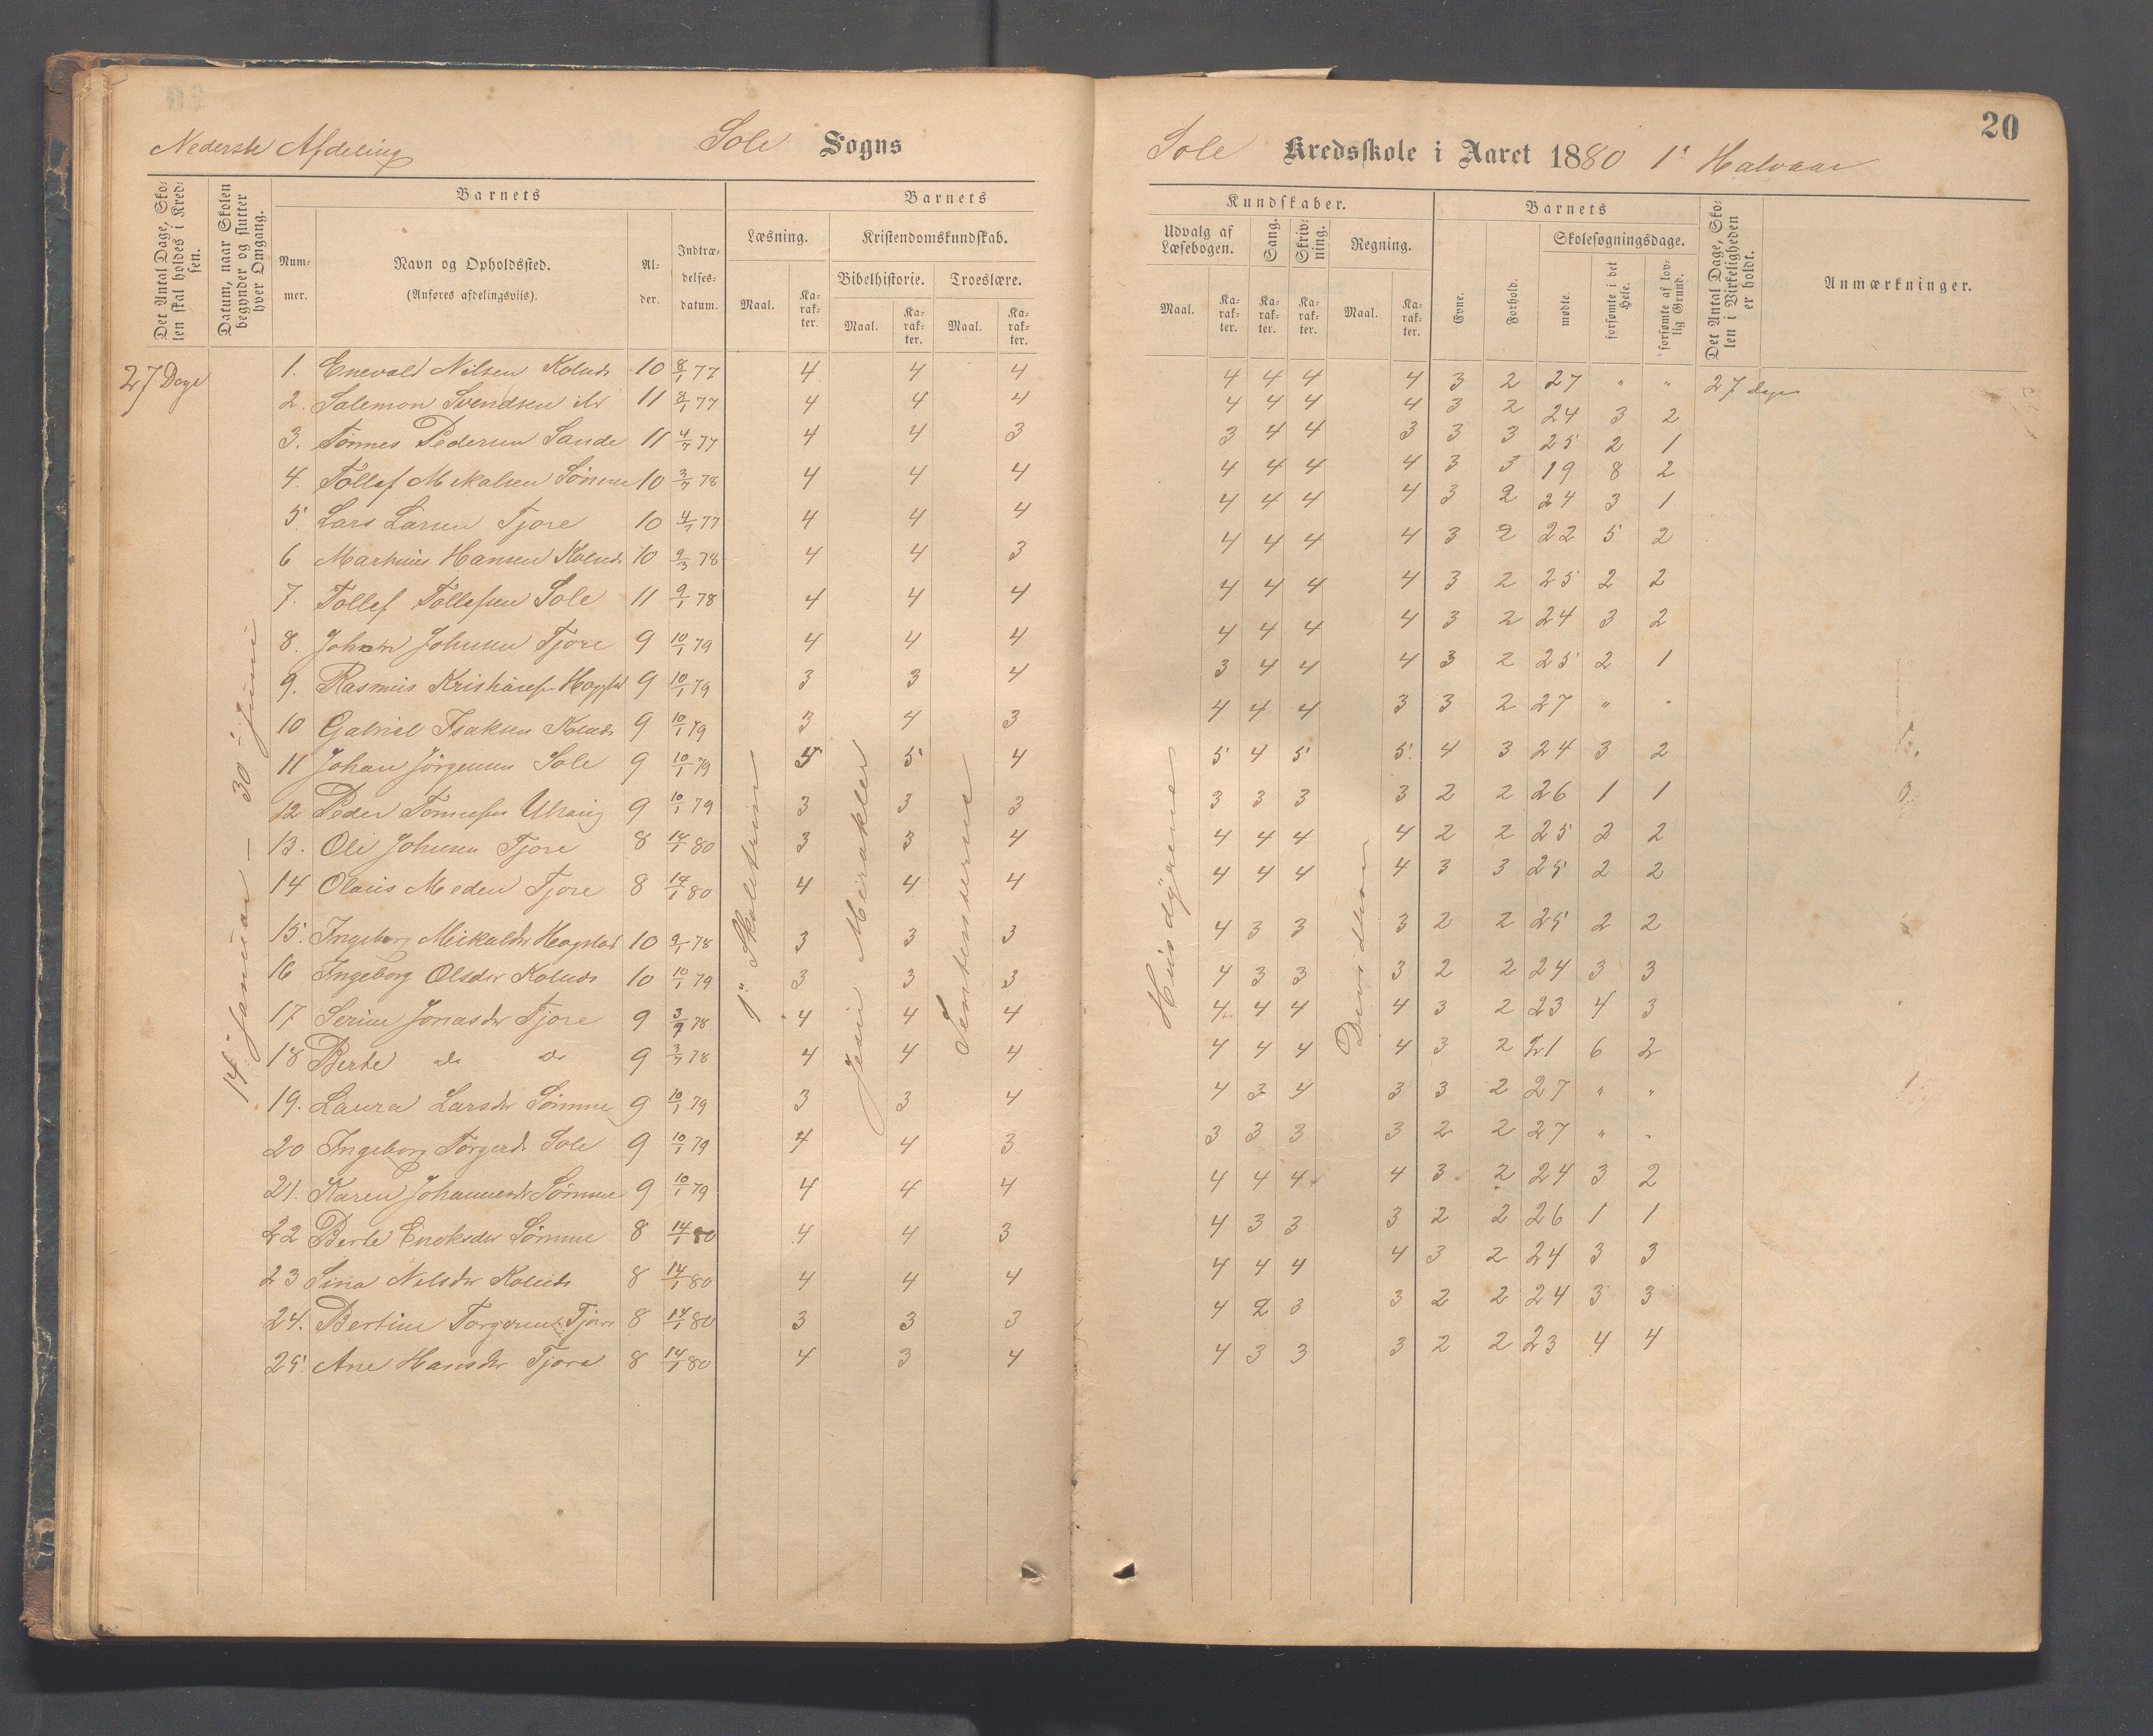 20
Nederste Afdeling
Sole Sogns
Sole Kredsskole i Aaret 1880 1ᵗᵉ Halvaar
Det Antal Dage, Skolen skal holdes i Kredsen.
Datum, naar Skolen begynder og slutter hver Omgang.
Barnets
Nummer.
Navn og Opholdssted.
(Anføres afdelingsviis).
Alder.
Indtrædelses-datum.
Barnets
Kundskaber.
Læsning.
Kristendomskundskab.
Bibelhistorie.
Troeslære.
Maal.
Karakter.
Maal.
Karakter.
Maal.
Karakter.
Udvalg af Læsebogen.
Sang.
Skrivning.
Regning.
Maal.
Karakter.
Karakter.
Karakter.
Maal.
Karakter.
Barnets
Evne.
Forhold.
Skolesøgningsdage.
mødte.
forsømte i det Hele.
forsømte af lovlig Grund.
Det Antal Dage, Skolen i Virkeligheden er holdt.
Anmærkninger.
27 Dage
14 Januar — 30 Juni
Jesu Mirakler
Sententserne
Husdyrene
Division
1. Enevald Nilsen 10 8/1 77 4 4 4 4 4 4 4 3 2 27 " " 27 dage
2. Salemon Svendsen 11 8/1 77 4 4 4 4 4 4 4 3 2 24 3 2
3. Tønnes Pedersen Sande 11 4/7 77 4 4 3 3 4 4 3 3 3 25 2 1
4. Tollef Mikalsen Sømme 10 3/7 78 4 4 4 4 4 4 4 3 3 19 8 2
5. Lars Larsen Tjore 10 4/7 77 4 4 4 4 4 4 4 3 2 24 3 1
6 Markus Hansen 10 9/3 78 4 4 3 4 4 4 4 3 2 22 5 2
7. Tollef Tollefsen Sole 11 9/1 78 4 4 4 4 4 4 4 3 2 25 2 2
8. Johan Johnsen Tjore 9 10/1 79 4 4 4 4 4 4 4 3 2 24 3 2
9. Rasmus 9 10/1 79 3 3 4 3 4 4 4 3 2 25 2 1
10 Gabriel Isaksen 9 10/1 79 3 4 3 4 4 4 3 3 2 27 " "
11 Johan Jörgensen Sole 9 10/1 79 5 5 4 5 4 5 5 4 3 24 3 2
12 Peder Tønnesen 9 10/1 79 3 3 3 3 3 3 3 2 2 26 1 1
13. Ole Johnsen Tjore 8 14/1 80 3 3 4 4 4 4 4 2 2 25 2 2
14 Olaus Tjore 8 14/1 80 4 4 4 4 4 4 4 3 3 25 2 2
15. Ingeborg 10 9/1 78 3 3 3 4 3 3 3 2 2 25 2 2
16 Ingeborg Olsdtr 10 10/1 79 3 3 3 4 3 3 3 2 2 24 3 3
17 Serine Jonasdtr Tjore 9 3/7 78 4 4 4 4 4 4 4 3 2 23 4 3
18 Berte do do 9 3/7 78 4 4 4 4 4 4 4 3 2 21 6 2
19. Laura Larsdtr Sömme 9 10/1 79 3 3 4 4 3 4 3 3 2 27 " "
20 Ingeborg Torgersd. Sole 9 10/1 79 4 4 3 3 3 3 3 2 2 27 " "
21. Karen Johannesdtr Sömme 9 10/1 79 4 4 4 4 4 4 4 3 2 24 3 2
22 Berte Sömme 8 14/1 80 4 4 3 4 3 3 3 2 2 26 1 1
23 Sina Nilsdtr 8 14/1 80 4 4 4 4 4 4 4 3 2 24 3 3
24. Bertine Tjore 8 14/1 80 3 3 3 4 2 3 3 2 2 24 3 3
25. Ane Hansdtr Tjora 8 14/1 80 4 3 4 4 3 3 3 2 2 23 4 4